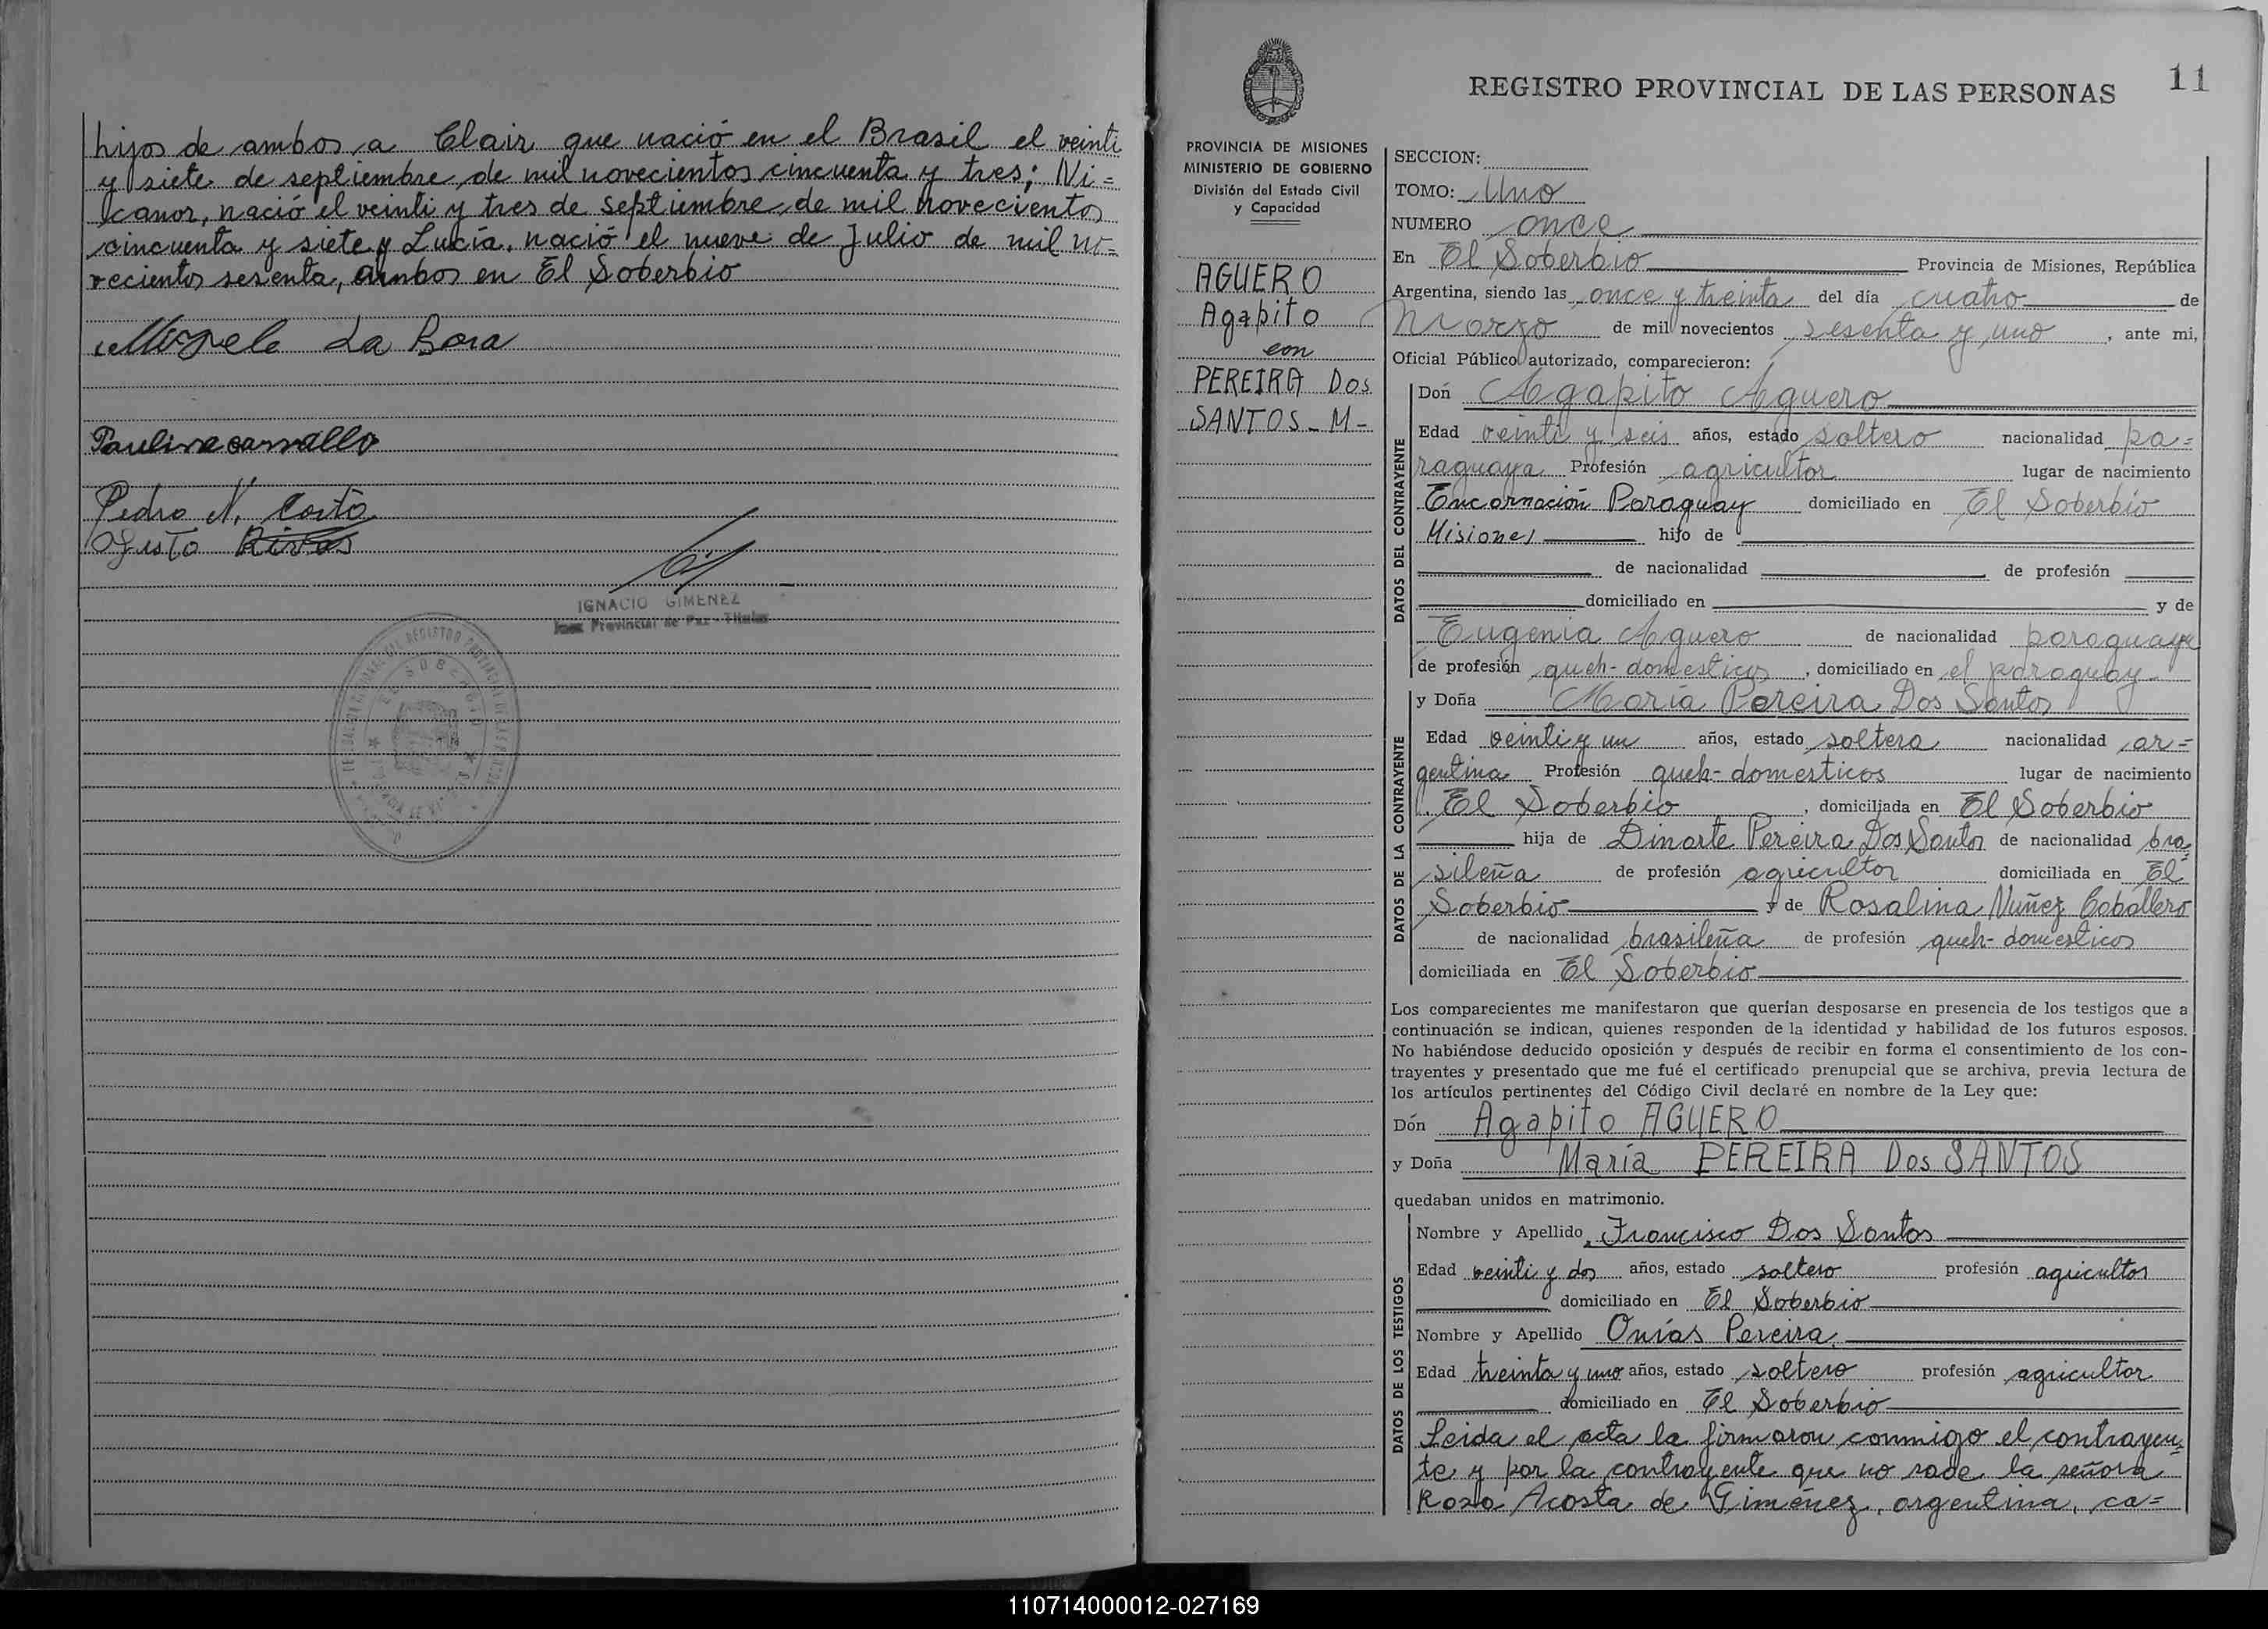 hijos de ambos a Clair que nació en el Brasil el veinti
y siete de septiembre de mil novecientos cincuenta y tres; Ni=
canor, nació el veinti y tres de septiembre de mil novecientos
cincuenta y siete y Lucía, nació el nueve de Julio de mil no=
vecientos sesenta, ambos en El Soberbio
La Bora
Pedro N. Costa
Rivas
IGNACIO GIMENEZ
Juez Provincial de Paz - Titular
EL SOBERBIO
11
REGISTRO PROVINCIAL DE LAS PERSONAS
PROVINCIA DE MISIONES
MINISTERIO DE GOBIERNO
División del Estado Civil
y Capacidad
AGUERO
Agapito
con
PEREIRA Dos
SANTOS - M -
SECCION:
TOMO: Uno
NUMERO once
En El Soberbio Provincia de Misiones, República
Argentina, siendo las once y treinta del día cuatro de
Marzo de mil novecientos sesenta y uno, ante mi,
Oficial Público autorizado, comparecieron:
DATOS DEL CONTRAYENTE
Don Agapito Aguero
Edad veinti y seis años, estado soltero nacionalidad pa=
raguaya Profesión agricultor lugar de nacimiento
Encarnación Paraguay domiciliado en El Soberbio
Misiones hijo de
de nacionalidad de profesión
domiciliado en y de
Eugenia Aguero de nacionalidad paraguaya
de profesión queh- domesticos, domiciliado en el paraguay
DATOS DE LA CONTRAYENTE
y Doña María Pereira Dos Santos
Edad veinti y un años, estado soltera nacionalidad ar=
gentina Profesión queh- domesticos lugar de nacimiento
El Soberbio, domiciliada en El Soberbio
hija de Dinarte Pereira Dos Santos de nacionalidad bra=
sileña de profesión agricultor domiciliada en El
Soberbio y de Rosalina Nuñez Caballero
de nacionalidad brasileña de profesión queh- domesticos
domiciliada en El Soberbio
Los comparecientes me manifestaron que querían desposarse en presencia de los testigos que a
continuación se indican, quienes responden de la identidad y habilidad de los futuros esposos.
No habiéndose deducido oposición y después de recibir en forma el consentimiento de los con-
trayentes y presentado que me fué el certificado prenupcial que se archiva, previa lectura de
los artículos pertinentes del Código Civil declaré en nombre de la Ley que:
Dón Agapito AGUERO
y Doña María PEREIRA Dos SANTOS
quedaban unidos en matrimonio.
DATOS DE LOS TESTIGOS
Nombre y Apellido Francisco Dos Santos
Edad veinti y dos años, estado soltero profesión agricultor
domiciliado en El Soberbio
Nombre y Apellido Onías Pereira
Edad treinta y uno años, estado soltero profesión agricultor
domiciliado en El Soberbio
Leida el acta la firmaron conmigo el contrayen=
te y por la contrayente que no sabe la señora
Rosa Acosta de Giménez, argentina, ca=
110714000012-027169